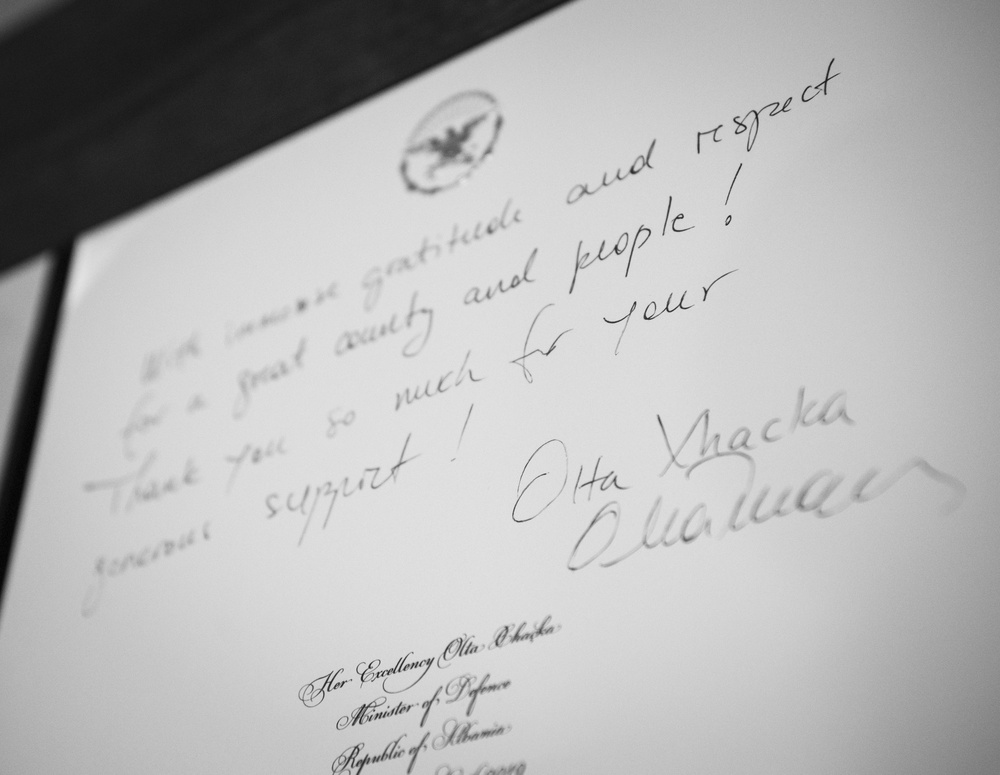 With immense gratitude and respect
for a great country and people!
Thank you so much for your
generous support!
Olta Xhacka
Her Excellency Olta Xhacka
Minister of Defence
Republic of Albania